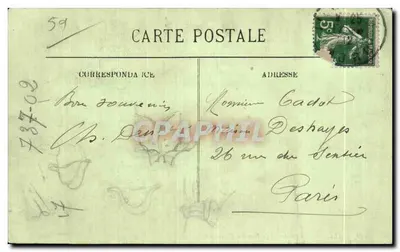 59
CARTE POSTALE
CORRESPONDANCE
ADRESSE
5c
737-02
Bon souvenir
Ch.
Monsieur Cadot
Maison Deshayes
26 rue du Sentier
Paris
CPAPHIL.COM